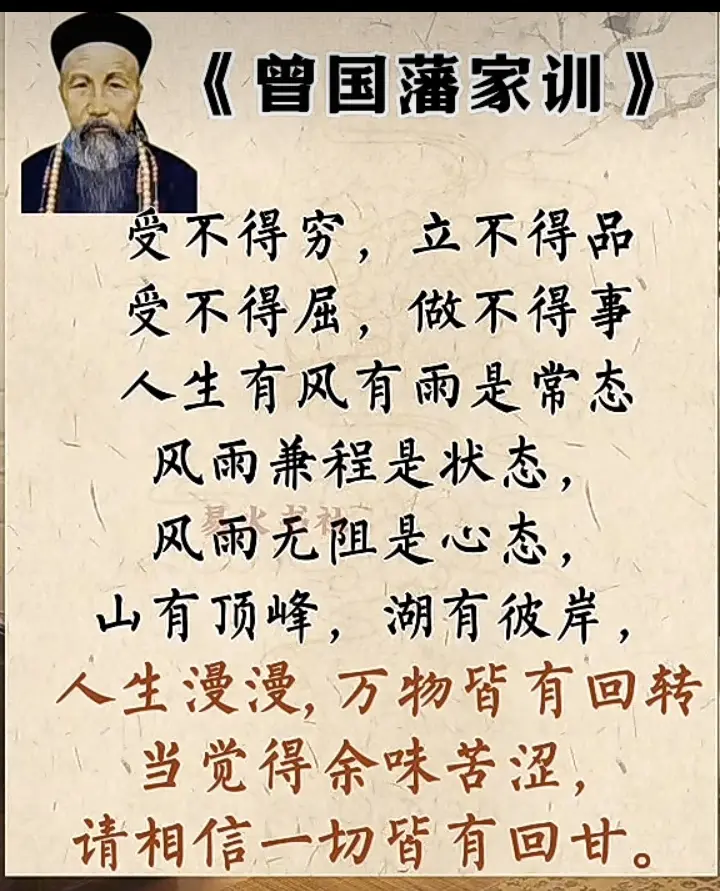 《曾国藩家训》
受不得穷，立不得品
受不得屈，做不得事
人生有风有雨是常态
风雨兼程是状态，
风雨无阻是心态，
山有顶峰，湖有彼岸，
人生漫漫，万物皆有回转
当觉得余味苦涩，
请相信一切皆有回甘。